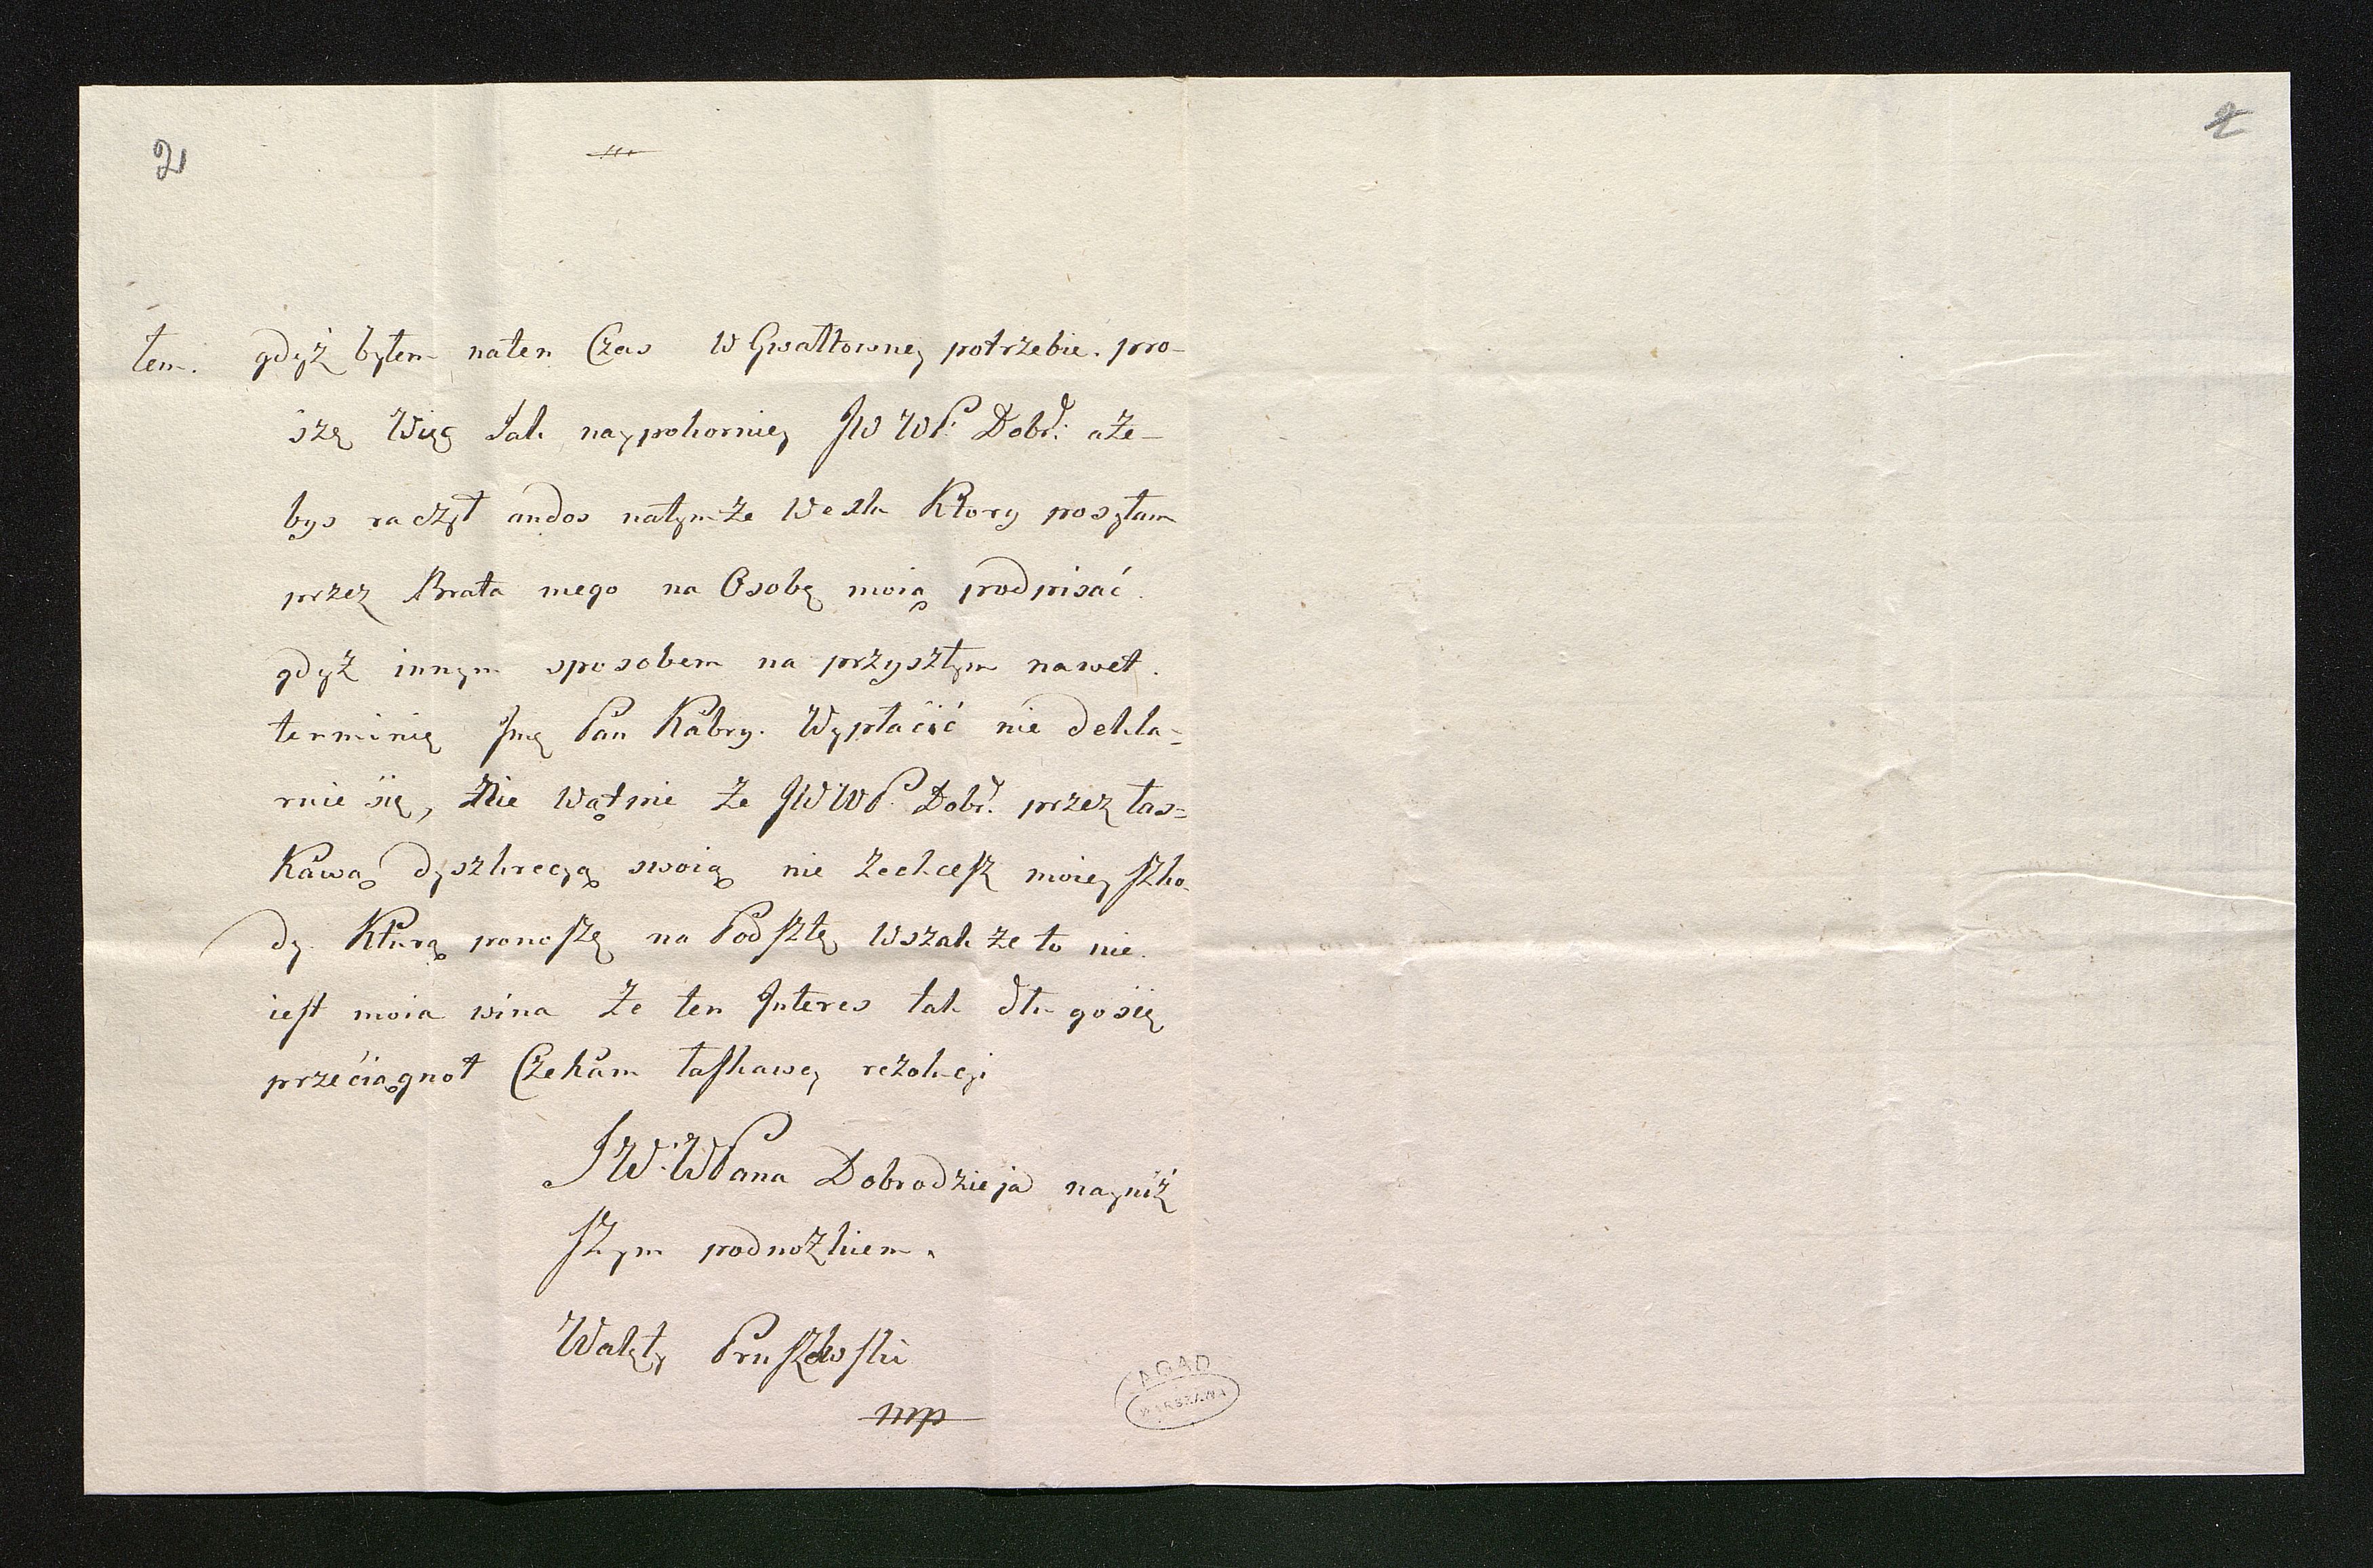 2
tem. gdyż byłem naten Czas W Gwałtowney potrzebie. pro-
szę Więc Jak naypokorniey JW WP. Dobr: aże-
bys raczył andos natymże Wexlu Ktory posyłam
przez Brata mego na Osobę moią podpisać.
gdyż innym sposobem na przyszłym nawet.
terminię Jmę Pan Kabry. Wypłaćić nie dekla-
ruie się, Nie Wątpie że JWWP. Dobr. przez łas-
Kawą dyszkrecyą swoią nie żechcesz moiey szko-
dy Kturą ponoszę na Podsztę Wszak że to nie.
iest moia wina że ten Interes tak dłu go się
przećiągnoł Czekam łaskawey rezolucyi
JW. WPana Dobrodzieja nayniż
szym podnożkiem.
Walęty Pruszkowski
mp
AGAD
WARSZAWA